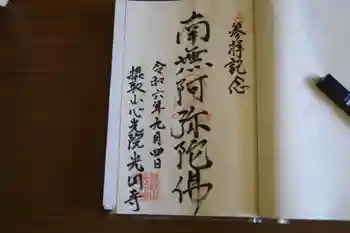 參拝記念
南無阿弥陀佛
令和六年九月四日
摂取山心光院光照寺